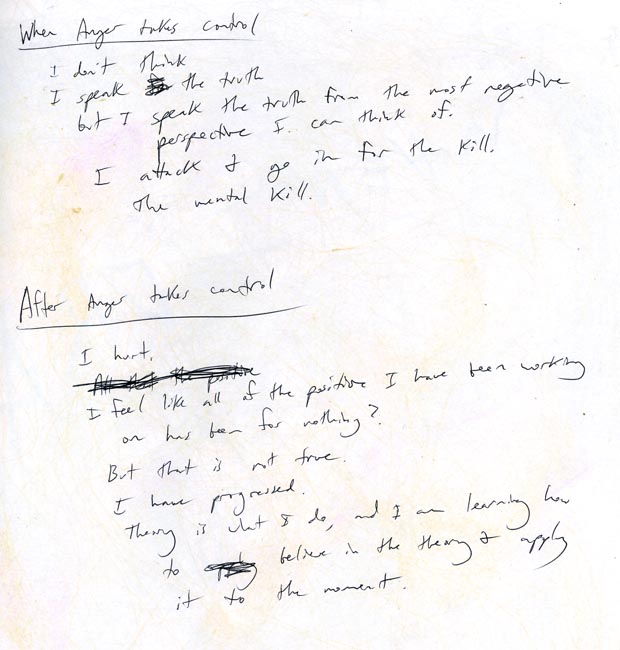 When Anger takes control
I don't think
I speak the truth
but I speak the truth from the most negative
perspective I can think of.
I attack & go in for the kill.
The mental kill.
After Anger takes control
I hurt.
All that the positive
I feel like all of the positive I have been working
on has been for nothing?
But that is not true.
I have progressed.
Theory is what I do, and I am learning how
to believe in the theory & apply
it to the moment.